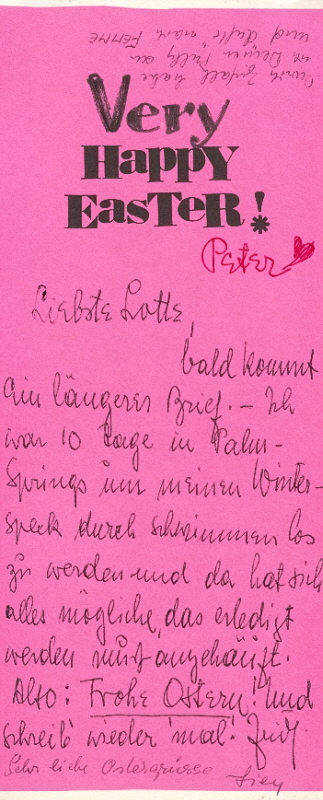 und dufte nach FEMME
in Deinen Pulli an
Very
HAPPY
EASTER!
PETER
Liebste Lotte,
bald kommt
ein längerer Brief. – Ich
war 10 Tage in Palm-
Springs um meinen Winter-
speck durch schwimmen los
zu werden – und da hat sich
alles mögliche, das erledigt
werden muss angehäuft.
Also: Frohe Ostern! Und
schreib' wieder 'mal.
Sehr liebe Ostergrüsse